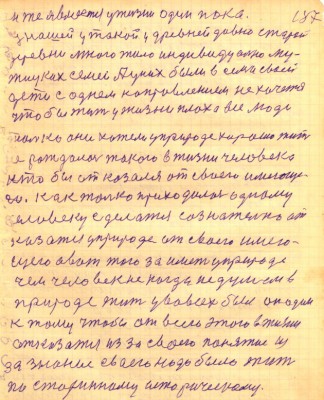 и те являются у жизни один пока. 187
у нашей у такой у древней давно старой
древни много жило индивидуално му-
жицких семей. А у них были в семье своей
дети с одном направлением не хочется
чтобы жит у жизни плоха все люди
только они хотели у природе хорошо жит
не рождалось такого в жизни человека
кто бы отказался от своего имеюще-
го. Как только приходилос одному
человеку сделатся сознателно от
казатся у природе от своего имею-
щего а вот того заимет у природе
чем человек не когда не думал в
природе жит у во всех был один
к тому чтобы от всего этого в жизни
отказатся из за своего понятие и
за знание своего надо было жит
по старинному историческому.